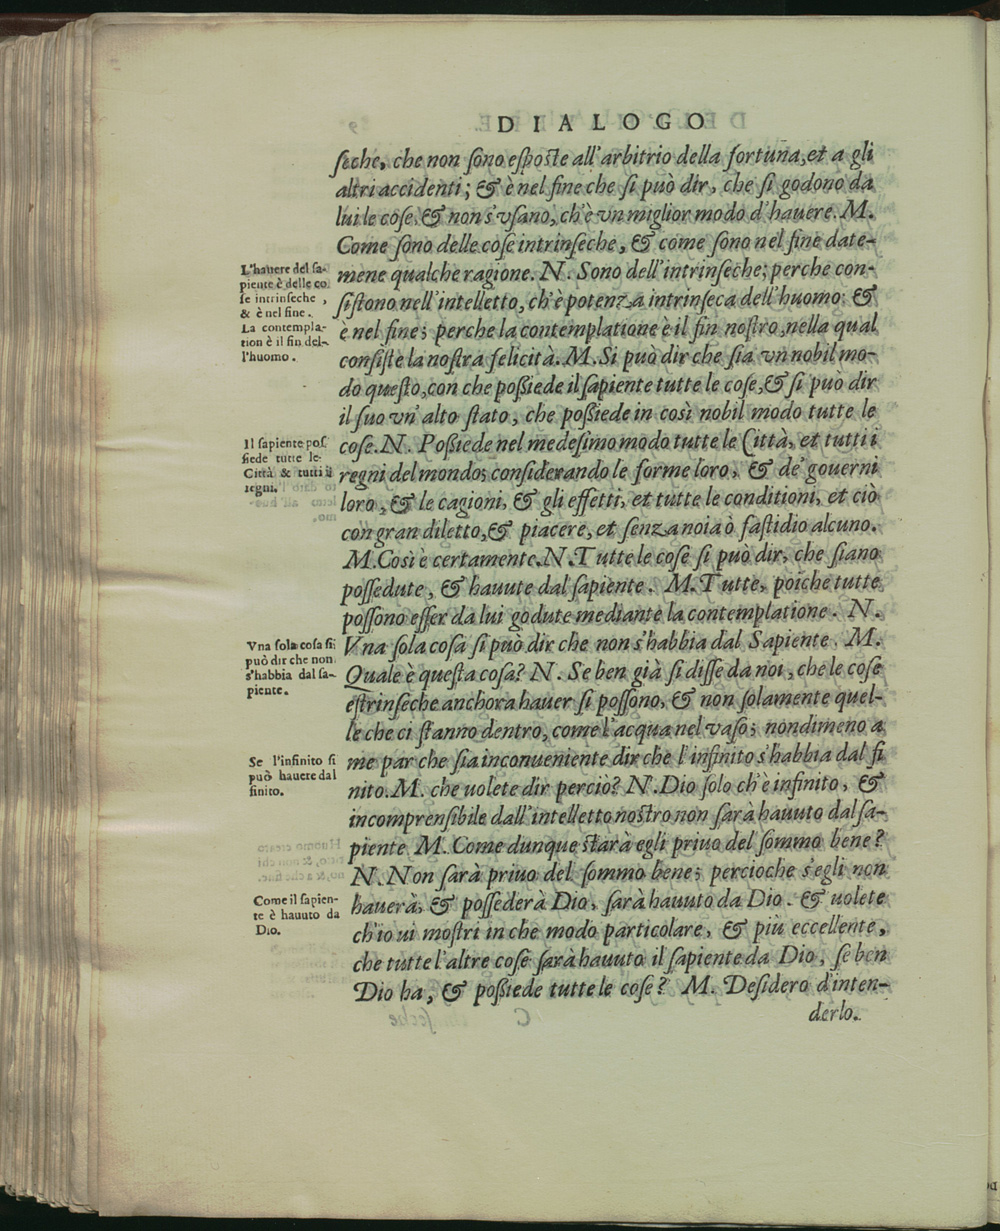 DIALOGO
ſeche, che non ſono eſpoſte all'arbitrio della fortuna, et a gli
altri accidenti; & è nel fine che ſi può dir, che ſi godono da
lui le coſe, & non s'vſano, ch'è vn miglior modo d'hauere. M.
Come ſono delle coſe intrinſeche, & come ſono nel fine date-
mene qualche ragione. N. Sono dell'intrinſeche; perche con-
ſiſtono nell'intelletto, ch'è potenza intrinſeca dell'huomo: &
è nel fine; perche la contemplatione è il fin noſtro, nella qual
conſiſte la noſtra felicità. M. Si può dir che ſia vn nobil mo-
do queſto, con che poßiede il ſapiente tutte le coſe, & ſi può dir
il ſuo vn' alto ſtato, che poßiede in così nobil modo tutte le
coſe. N. Poßiede nel medeſimo modo tutte le Città, et tutti i
regni del mondo; conſiderando le forme loro, & de' gouerni
loro, & le cagioni, & gli effetti, et tutte le conditioni, et ciò
con gran diletto, & piacere, et ſenza noia ò faſtidio alcuno.
M. Così è certamente. N. Tutte le coſe ſi può dir, che ſiano
poſſedute, & hauute dal ſapiente. M. Tutte, poiche tutte
poſſono eſſer da lui godute mediante la contemplatione. N.
Vna ſola coſa ſi può dir che non s'habbia dal Sapiente. M.
Quale è queſta coſa? N. Se ben già ſi diſſe da noi, che le coſe
eſtrinſeche anchora hauer ſi poſſono, & non ſolamente quel-
le che ci ſtanno dentro, come l'acqua nel vaſo; nondimeno a
me par che ſia inconueniente dir che l'infinito s'habbia dal fi
nito. M. che uolete dir perciò? N. Dio ſolo ch'è infinito, &
incomprenſibile dall'intelletto noſtro non ſarà hauuto dal ſa-
piente. M. Come dunque ſtarà egli priuo del ſommo bene?
N. Non ſarà priuo del ſommo bene; percioche s'egli non
hauerà, & poſſederà Dio, ſarà hauuto da Dio. & uolete
ch'io ui moſtri in che modo particolare, & più eccellente,
che tutte l'altre coſe ſarà hauuto il ſapiente da Dio, ſe ben
Dio ha, & poßiede tutte le coſe? M. Deſidero d'inten-
derlo.
L'hauere del ſa-
piente è delle co
ſe intrinſeche,
& è nel fine.
La contempla-
tion è il fin del-
l'huomo.
Il ſapiente poſ
ſiede tutte le
Città & tutti i
regni.
Vna ſola coſa ſi
può dir che non
s'habbia dal ſa-
piente.
Se l'infinito ſi
può hauere dal
finito.
Come il ſapien-
te è hauuto da
Dio.